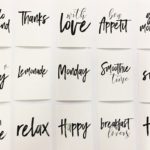 Thanks
with
love
Appetit
Lemonade
Monday
Smoothie
time
relax
Happy
breakfast
lovers